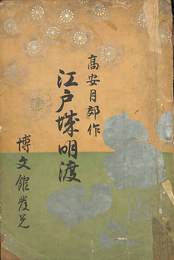 高安月郊作
江戸城明渡
博文館発兌